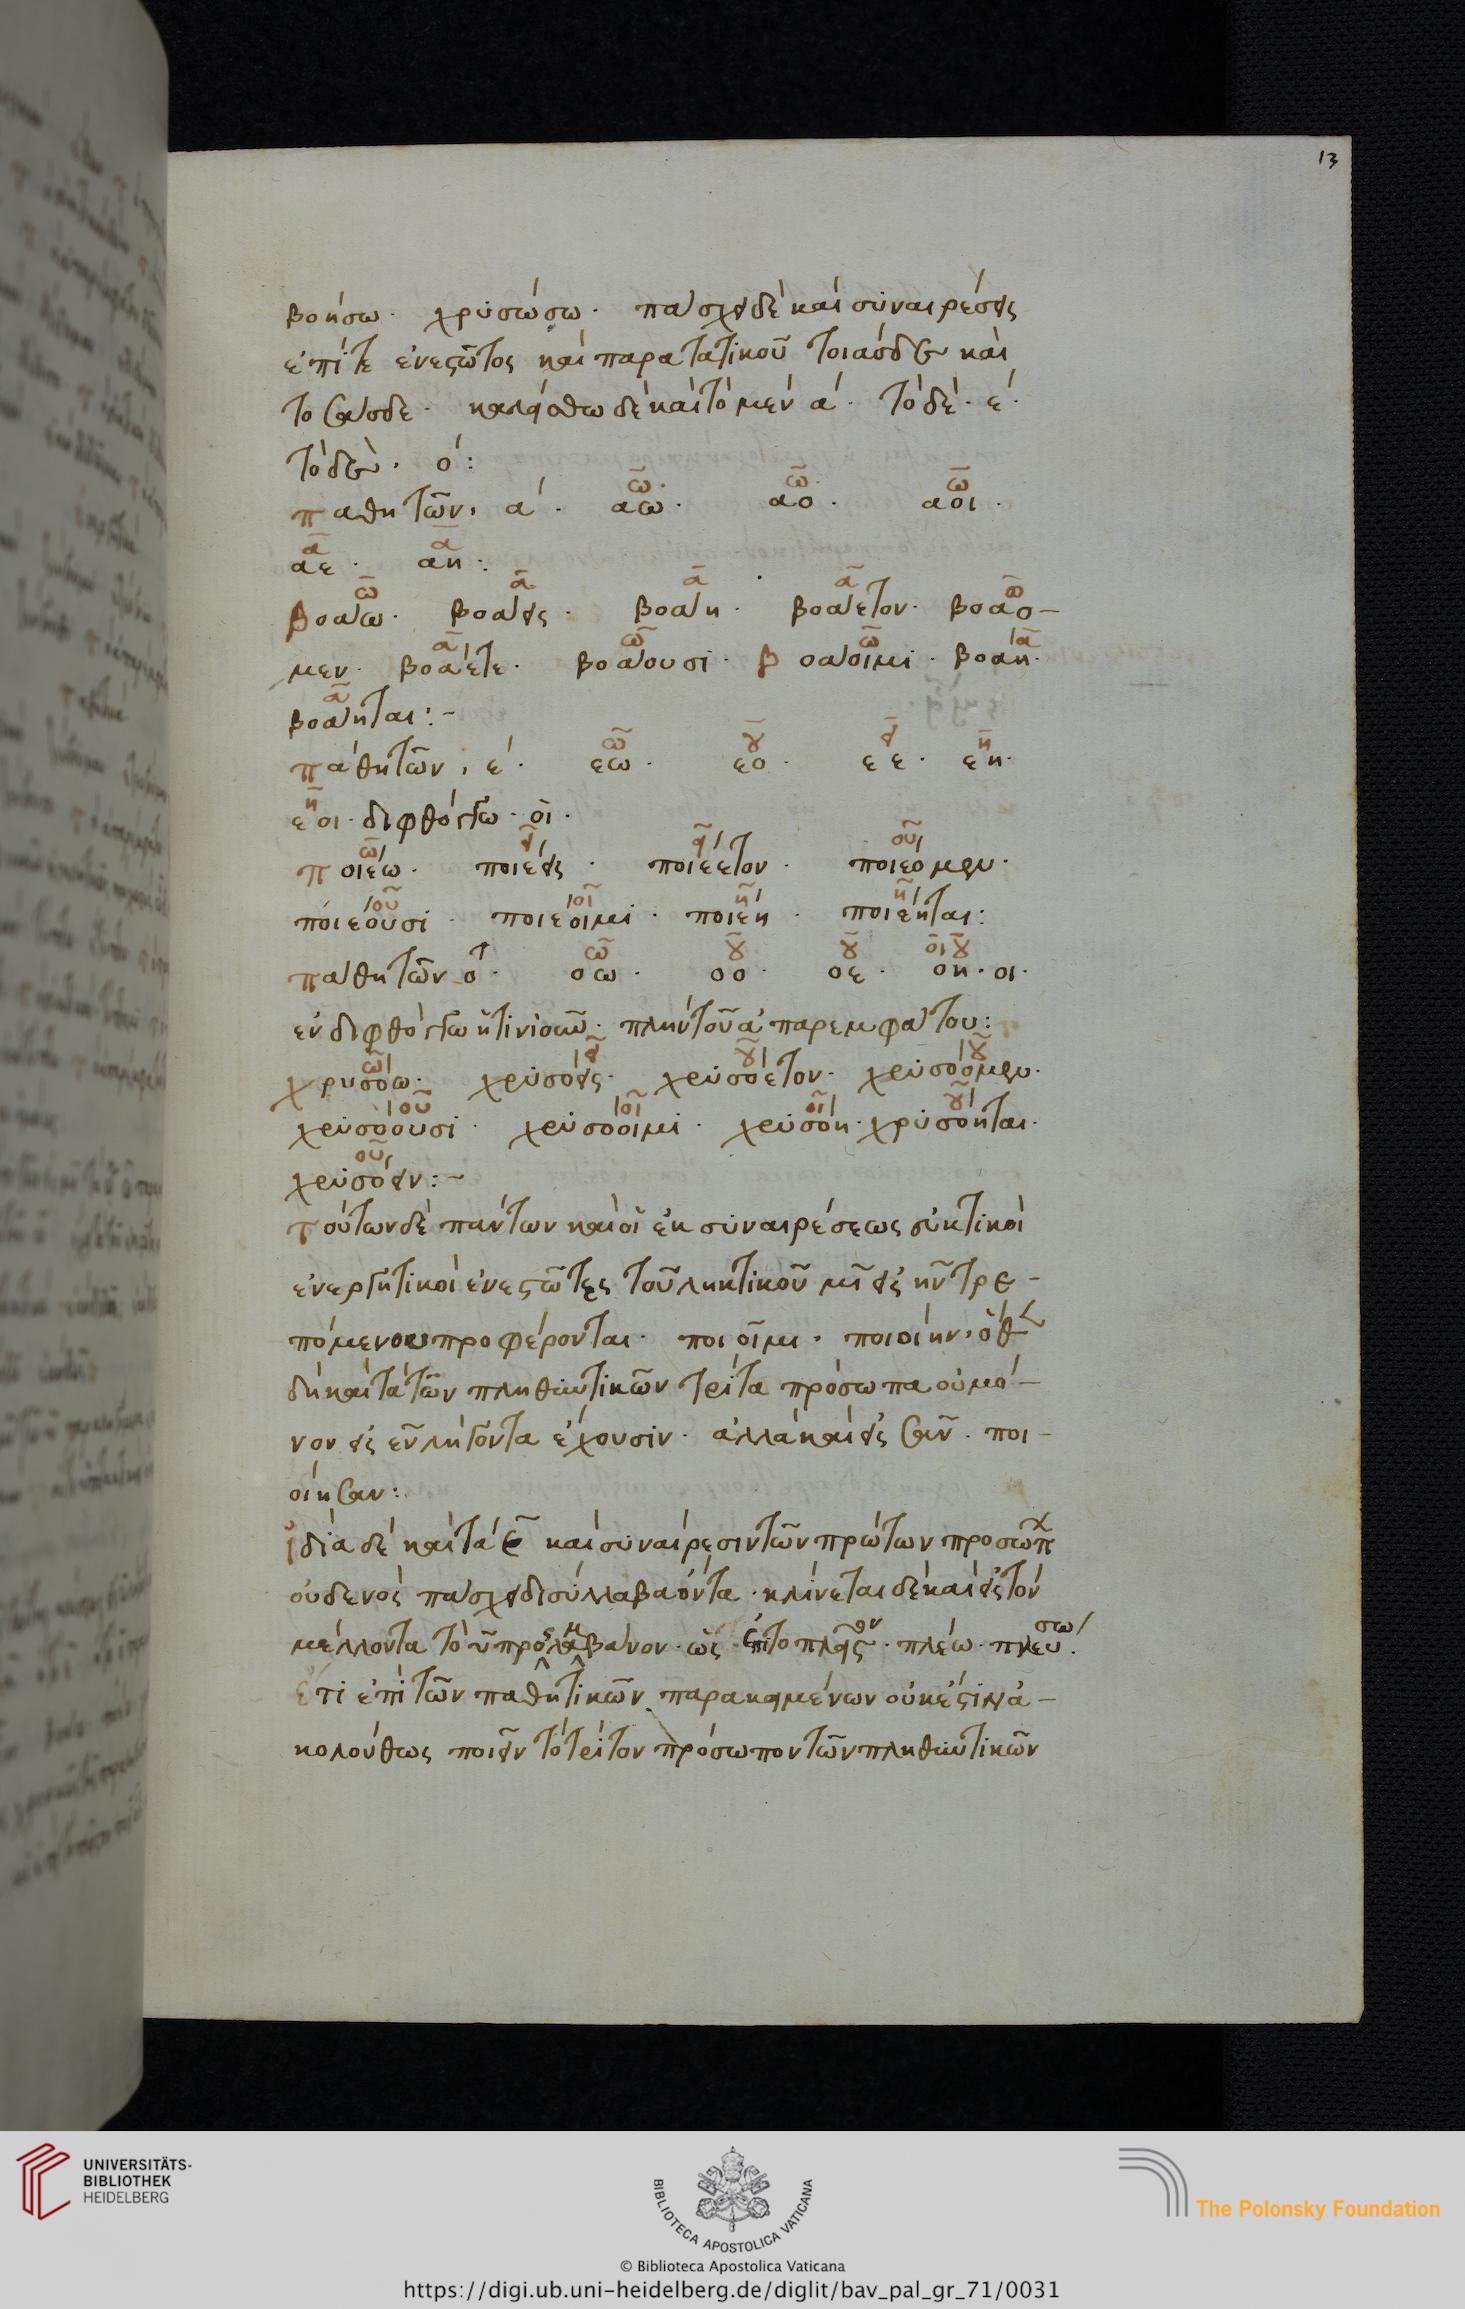 13
βοήσω· χρυσώσω· πάσχει δὲ καὶ συναιρέσεις
ἐπί τε ἐνεστῶτος καὶ παρατατικοῦ τοιάσδε καὶ
τοσάσδε· καλείσθω δὲ καὶ τὸ μὲν α΄· τὸ δὲ· ε΄·
τὸ δὲ· ο΄:
παθητῶν· α΄· αω· αο· αοι·
ω ω ω
αε· αη:
α α
βοάω· βοάεις· βοάη· βοάετον· βοάο–
ω ᾶ ᾶ ᾶ ω
μεν· βοάετε· βοάουσι· βοάοιμι· βοάη·
ᾶ ῶ ῶ ᾶ
βοάηται:–
ᾶ
πάθη τῶν· ε΄· εω· εο· εε· εη·
ω ου ει η
εοι· διφθόγγω· οι·
η
ποιέω· ποιέεις· ποιέετον· ποιέομεν·
ῶ εῖ εῖ οῦ
ποιέουσι· ποιέοιμι· ποιέη· ποιέηται:
οῦ οῖ ῆ ῆ
πάθη τῶν ο· οω· οο· οε· οη· οι·
ω ου ου οι ου
ἐν διφθόγγω ἡτινιοῦν· πλὴν τοῦ ἀπαρεμφάτου:
χρυσόω· χρυσόεις· χρυσόετον· χρυσόομεν·
χρυσόουσι· χρυσόοιμι· χρυσόη· χρυσόηται·
οῦ οῖ οῖ οῦ
χρυσόειν:–
οῦ
τούτων δὲ πάντων καὶ οἱ ἐκ συναιρέσεως εὐκτικοὶ
ἐνεργητικοὶ ἐνεστῶτες τοῦ ληκτικοῦ μι εἰς ην τρε–
πόμενου προφέρονται· ποιοῖμι· ποιοίην· ὅθεν
δὴ καὶ τὰ τῶν πληθυντικῶν τρίτα πρόσωπα οὐ μό–
νον εἰς εν λήγοντα ἔχουσιν· ἀλλὰ καὶ εἰς σαν· ποι–
οίησαν:
ἰδία δὲ κατὰ ε καὶ συναίρεσιν τῶν πρώτων προσώπ
οὐδενὸς πάσχει δισύλλαβα ὄντα· κλίνεται δὲ καὶ εἰς τὸν
μέλλοντα τὸ υ προσλαμβάνον· ὡς ἐπὶ τὸ πλεῖστον· πλέω· πλεύσω·
ἔτι ἐπὶ τῶν παθητικῶν παρακειμένων οὐκ ἔστιν ἀ–
κολούθως ποιεῖν τὸ τρίτον πρόσωπον τῶν πληθυντικῶν
UNIVERSITÄTS-
BIBLIOTHEK
HEIDELBERG
BIBLIOTECA APOSTOLICA VATICANA
The Polonsky Foundation
© Biblioteca Apostolica Vaticana
https://digi.ub.uni-heidelberg.de/diglit/bav_pal_gr_71/0031